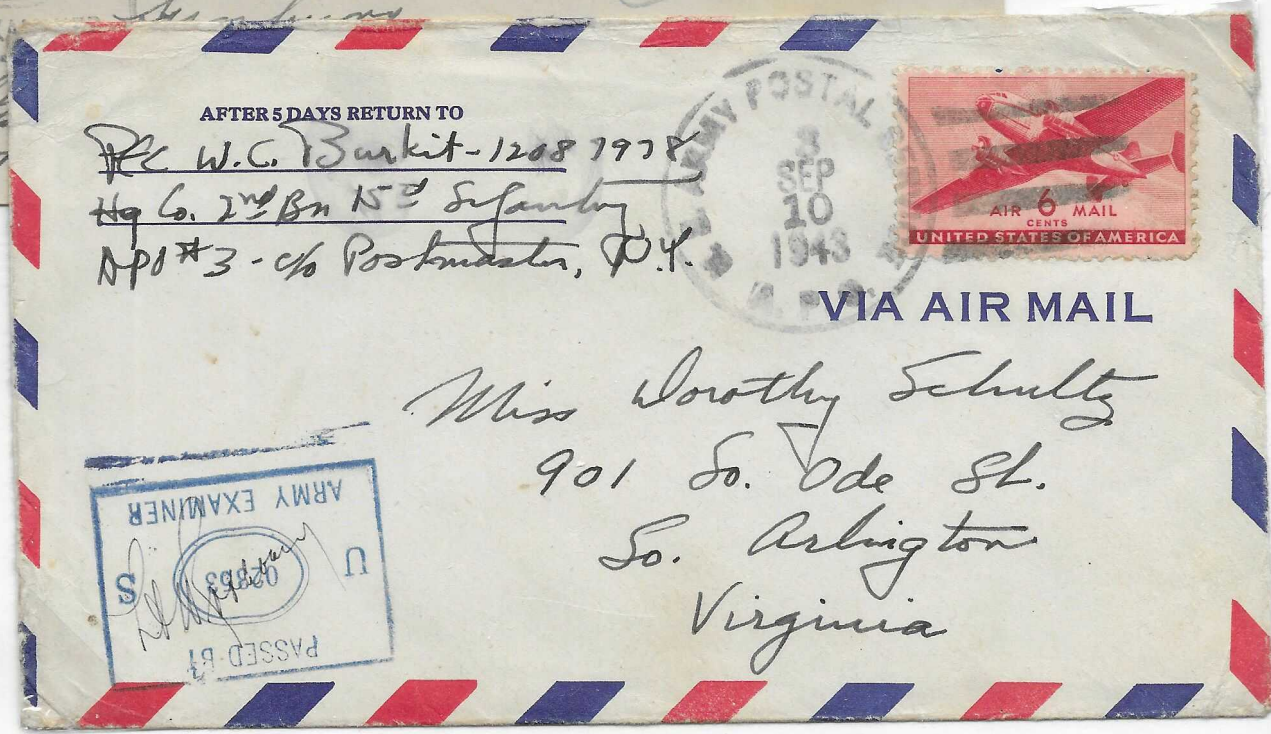 AFTER 5 DAYS RETURN TO
Pfc W.C. Burkit - 12087978
Hq Co. 2nd Bn 15d Infantry
APO #3 - c/o Postmaster, N.Y.
U.S. ARMY POSTAL
3
SEP
10
1943
A.P.O.
AIR 6 MAIL
CENTS
UNITED STATES OF AMERICA
VIA AIR MAIL
Miss Dorothy Schultz
901 So. Ode St.
So. Arlington
Virginia
PASSED BY
U S
ARMY EXAMINER